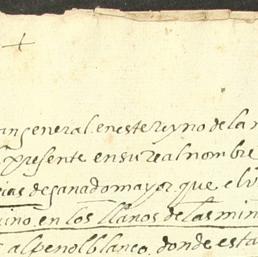 an general. en este Reyno de la n
presente en su real nombre
cias de ganado mayor que el v
uino, en los llanos de las min
al peñol blanco, donde esta